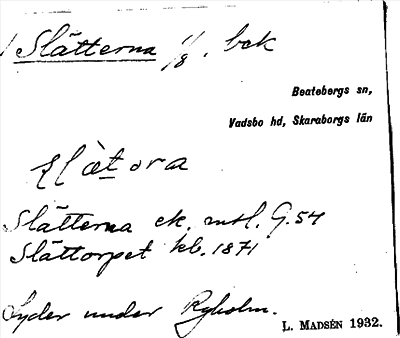 Slätterna 1/8. bck
Beatebergs sn,
Vadsbo hd, Skaraborgs län
Slätterna ek. mtl. G.54
Slättorpet kb. 1871
Lyder under Ryholm.
L. MADSÉN 1932.